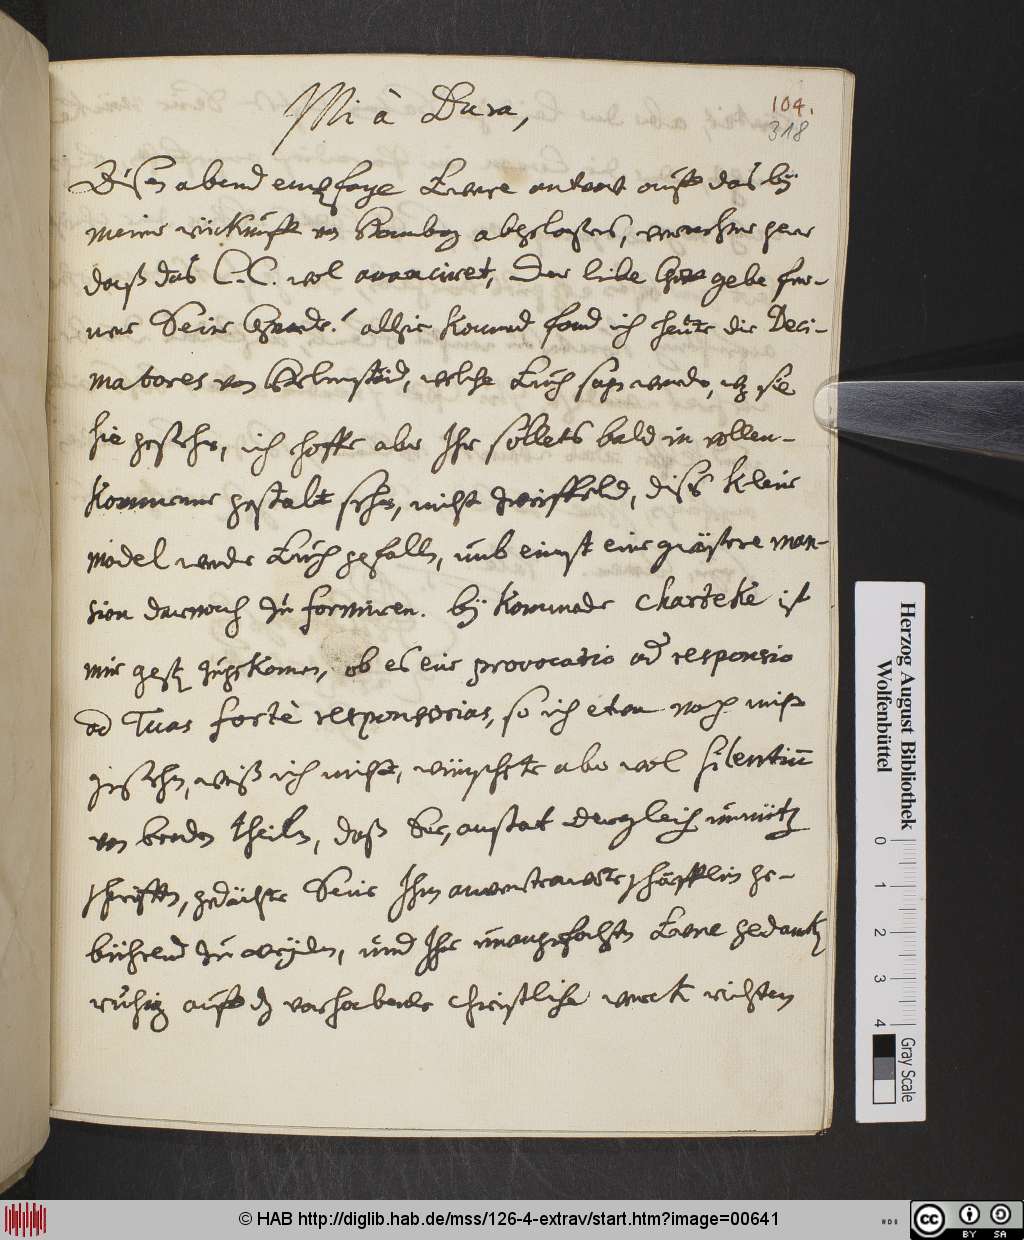 104.
318
Mi à Dura,
Disen abend empfange Ewre antwort auff das bey
meine rückunfft von Hamborg abgelassenes, vernehme gern
daß das C.C. wol avanciret, Der liebe Gott gebe fer-
ner Seine Gnade! alhie kommend fand ich heute die Deci-
matores von welche Euch sagen werden, wz sie
hie gesehn, ich hoffe aber Ihr sollets bald in vollen-
kommene gestalt sehen, nicht zweiffeld, dises kleine
model werde Euch gefallen, umb einst eine grössere man-
sion darnach zu formiren. bey kommede charteke ist
mir gest. zugekomen, ob es eine provocatio od responsio
ad Tuas fortè responsorias, so ich etwa noch nicht
gesehn, weiß ich nicht, wünschete aber wol silentiu
von beeden theilen, daß Er, anstat dergleich unnütz
schrifften, gedächte Seine Ihm anvertrawete schäfflin ge-
bührend zu weyden, und Ihr unangefochten Ewre gedanck
ruhig auff dz vorhabende christliche werck richten
Herzog August Bibliothek
Wolfenbüttel
0 1 2 3 4
Gray Scale
© HAB http://diglib.hab.de/mss/126-4-extrav/start.htm?image=00641
cc BY SA